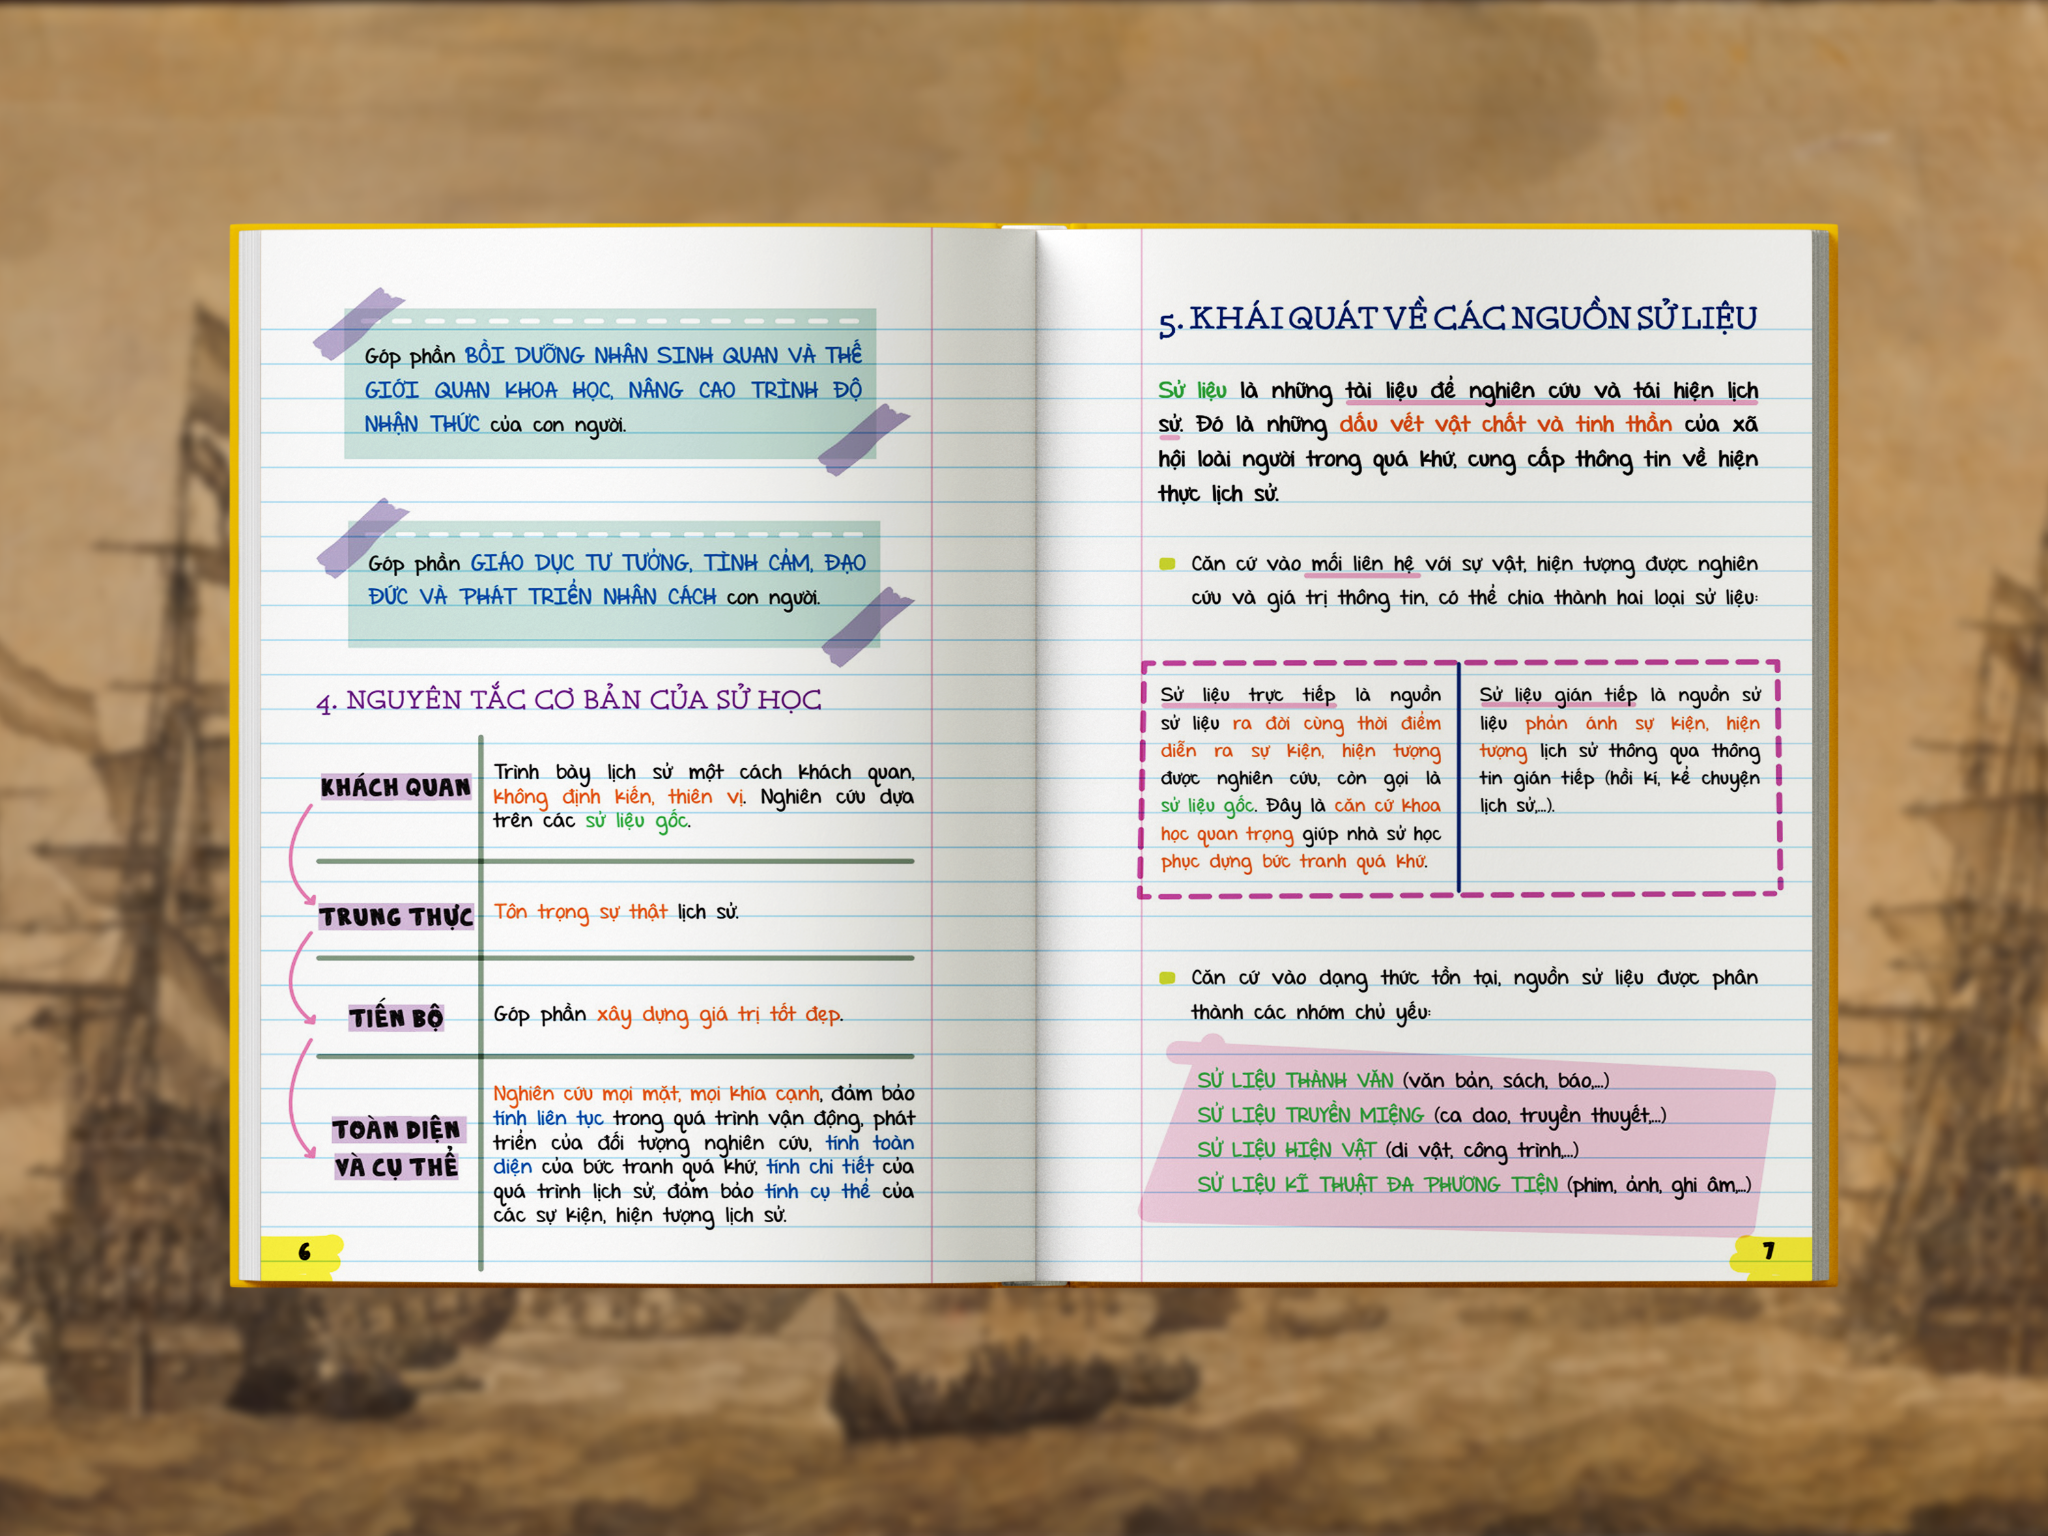 Góp phần BỒI DƯỠNG NHÂN SINH QUAN VÀ THẾ
GIỚI QUAN KHOA HỌC, NÂNG CAO TRÌNH ĐỘ
NHẬN THỨC của con người.
Góp phần GIÁO DỤC TƯ TƯỞNG, TÌNH CẢM, ĐẠO
ĐỨC VÀ PHÁT TRIỂN NHÂN CÁCH con người.
4. NGUYÊN TẮC CƠ BẢN CỦA SỬ HỌC
KHÁCH QUAN
Trình bày lịch sử một cách khách quan,
không định kiến, thiên vị. Nghiên cứu dựa
trên các sử liệu gốc.
TRUNG THỰC
Tôn trọng sự thật lịch sử.
TIẾN BỘ
Góp phần xây dựng giá trị tốt đẹp.
TOÀN DIỆN
VÀ CỤ THỂ
Nghiên cứu mọi mặt, mọi khía cạnh, đảm bảo
tính liên tục trong quá trình vận động, phát
triển của đối tượng nghiên cứu, tính toàn
diện của bức tranh quá khứ, tính chi tiết của
quá trình lịch sử, đảm bảo tính cụ thể của
các sự kiện, hiện tượng lịch sử.
6
5. KHÁI QUÁT VỀ CÁC NGUỒN SỬ LIỆU
Sử liệu là những tài liệu để nghiên cứu và tái hiện lịch
sử. Đó là những dấu vết vật chất và tinh thần của xã
hội loài người trong quá khứ, cung cấp thông tin về hiện
thực lịch sử.
Căn cứ vào mối liên hệ với sự vật, hiện tượng được nghiên
cứu và giá trị thông tin, có thể chia thành hai loại sử liệu:
Sử liệu trực tiếp là nguồn
sử liệu ra đời cùng thời điểm
diễn ra sự kiện, hiện tượng
được nghiên cứu, còn gọi là
sử liệu gốc. Đây là căn cứ khoa
học quan trọng giúp nhà sử học
phục dựng bức tranh quá khứ.
Sử liệu gián tiếp là nguồn sử
liệu phản ánh sự kiện, hiện
tượng lịch sử thông qua thông
tin gián tiếp (hồi kí, kể chuyện
lịch sử,...).
Căn cứ vào dạng thức tồn tại, nguồn sử liệu được phân
thành các nhóm chủ yếu:
SỬ LIỆU THÀNH VĂN (văn bản, sách, báo,...)
SỬ LIỆU TRUYỀN MIỆNG (ca dao, truyền thuyết,...)
SỬ LIỆU HIỆN VẬT (di vật, công trình,...)
SỬ LIỆU KĨ THUẬT ĐA PHƯƠNG TIỆN (phim, ảnh, ghi âm,...)
7